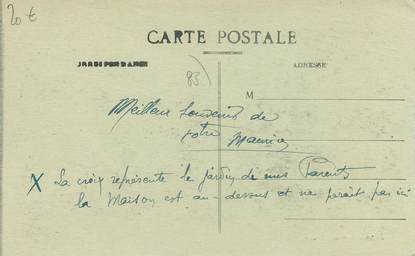 20 €
CARTE POSTALE
CORRESPONDANCE
ADRESSE
83
M
Meilleur souvenir de
votre Maurice
X La croix représente le jardin de mes Parents
la Maison est au-dessus et ne paraît pas ici